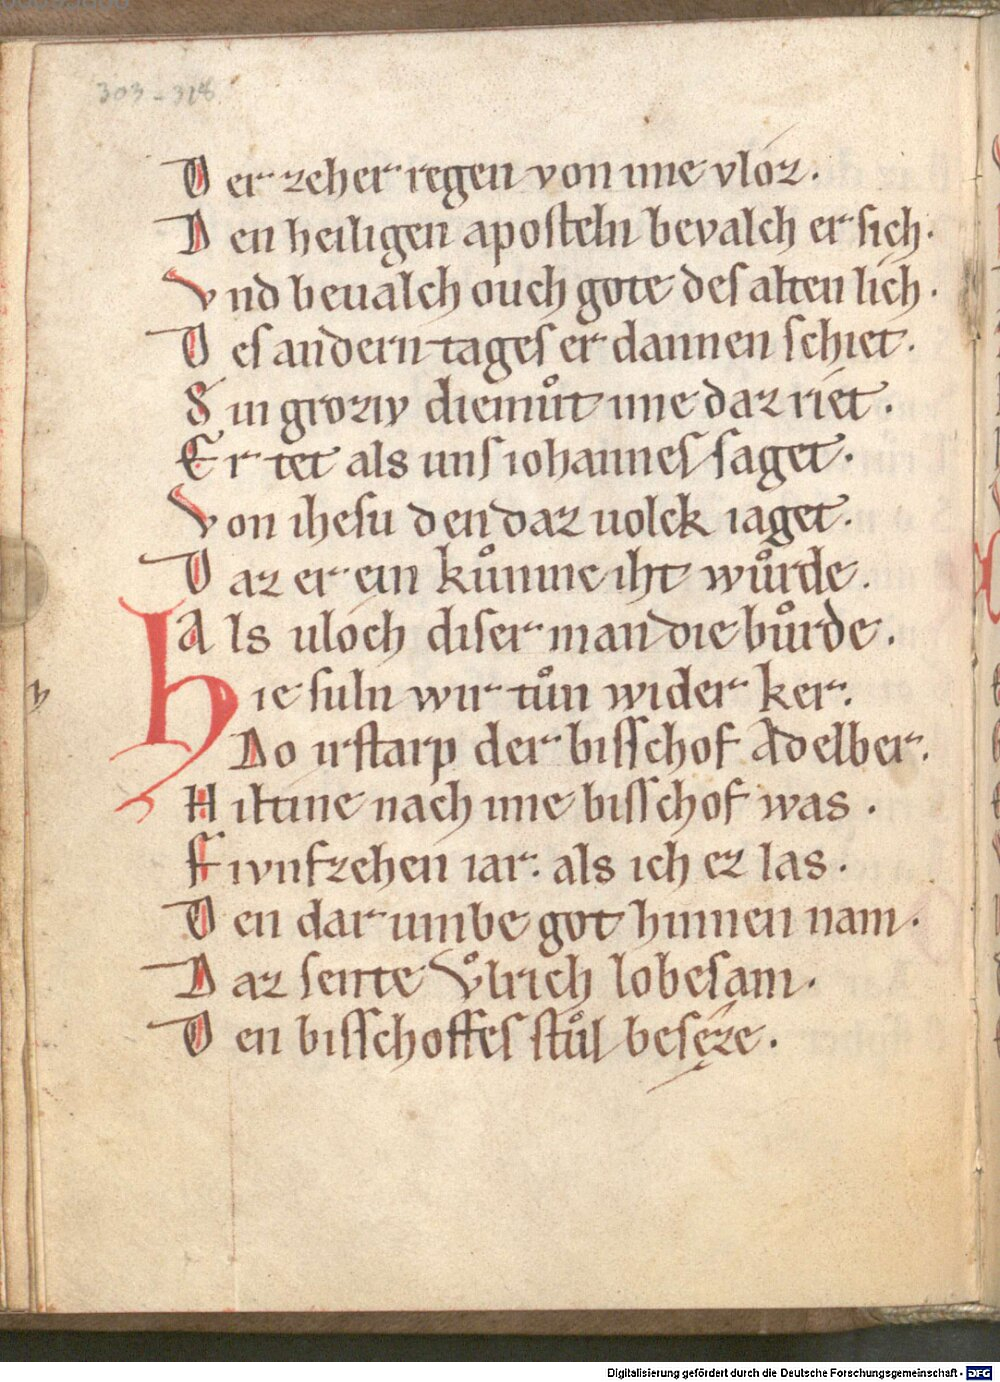 303 - 318
Der zeher regen von ime vloz.
Den heiligen aposteln bevalch er sich.
Vnd beualch ouch gote des alten lich.
Des andern tages er dannen schiet.
Sin groziv diemuͦt ime daz riet.
Er tet als uns iohannes saget.
Von ihesu den daz uolck iaget.
Daz er ein kuͦnine iht wuͦrde.
Als vloch diser man die buͦrde.
Hie suln wir tuͦn wider ker.
h
Do irstarp der bisschof Adelber.
Hiltine nach ime bisschof was.
Fivnfzehen iar. als ich ez las.
Den dar umbe got hinnen nam.
Daz sente Vͦlrich lobesam.
Den bisschoffes stuͦl besęze.
Digitalisierung gefördert durch die Deutsche Forschungsgemeinschaft - DFG